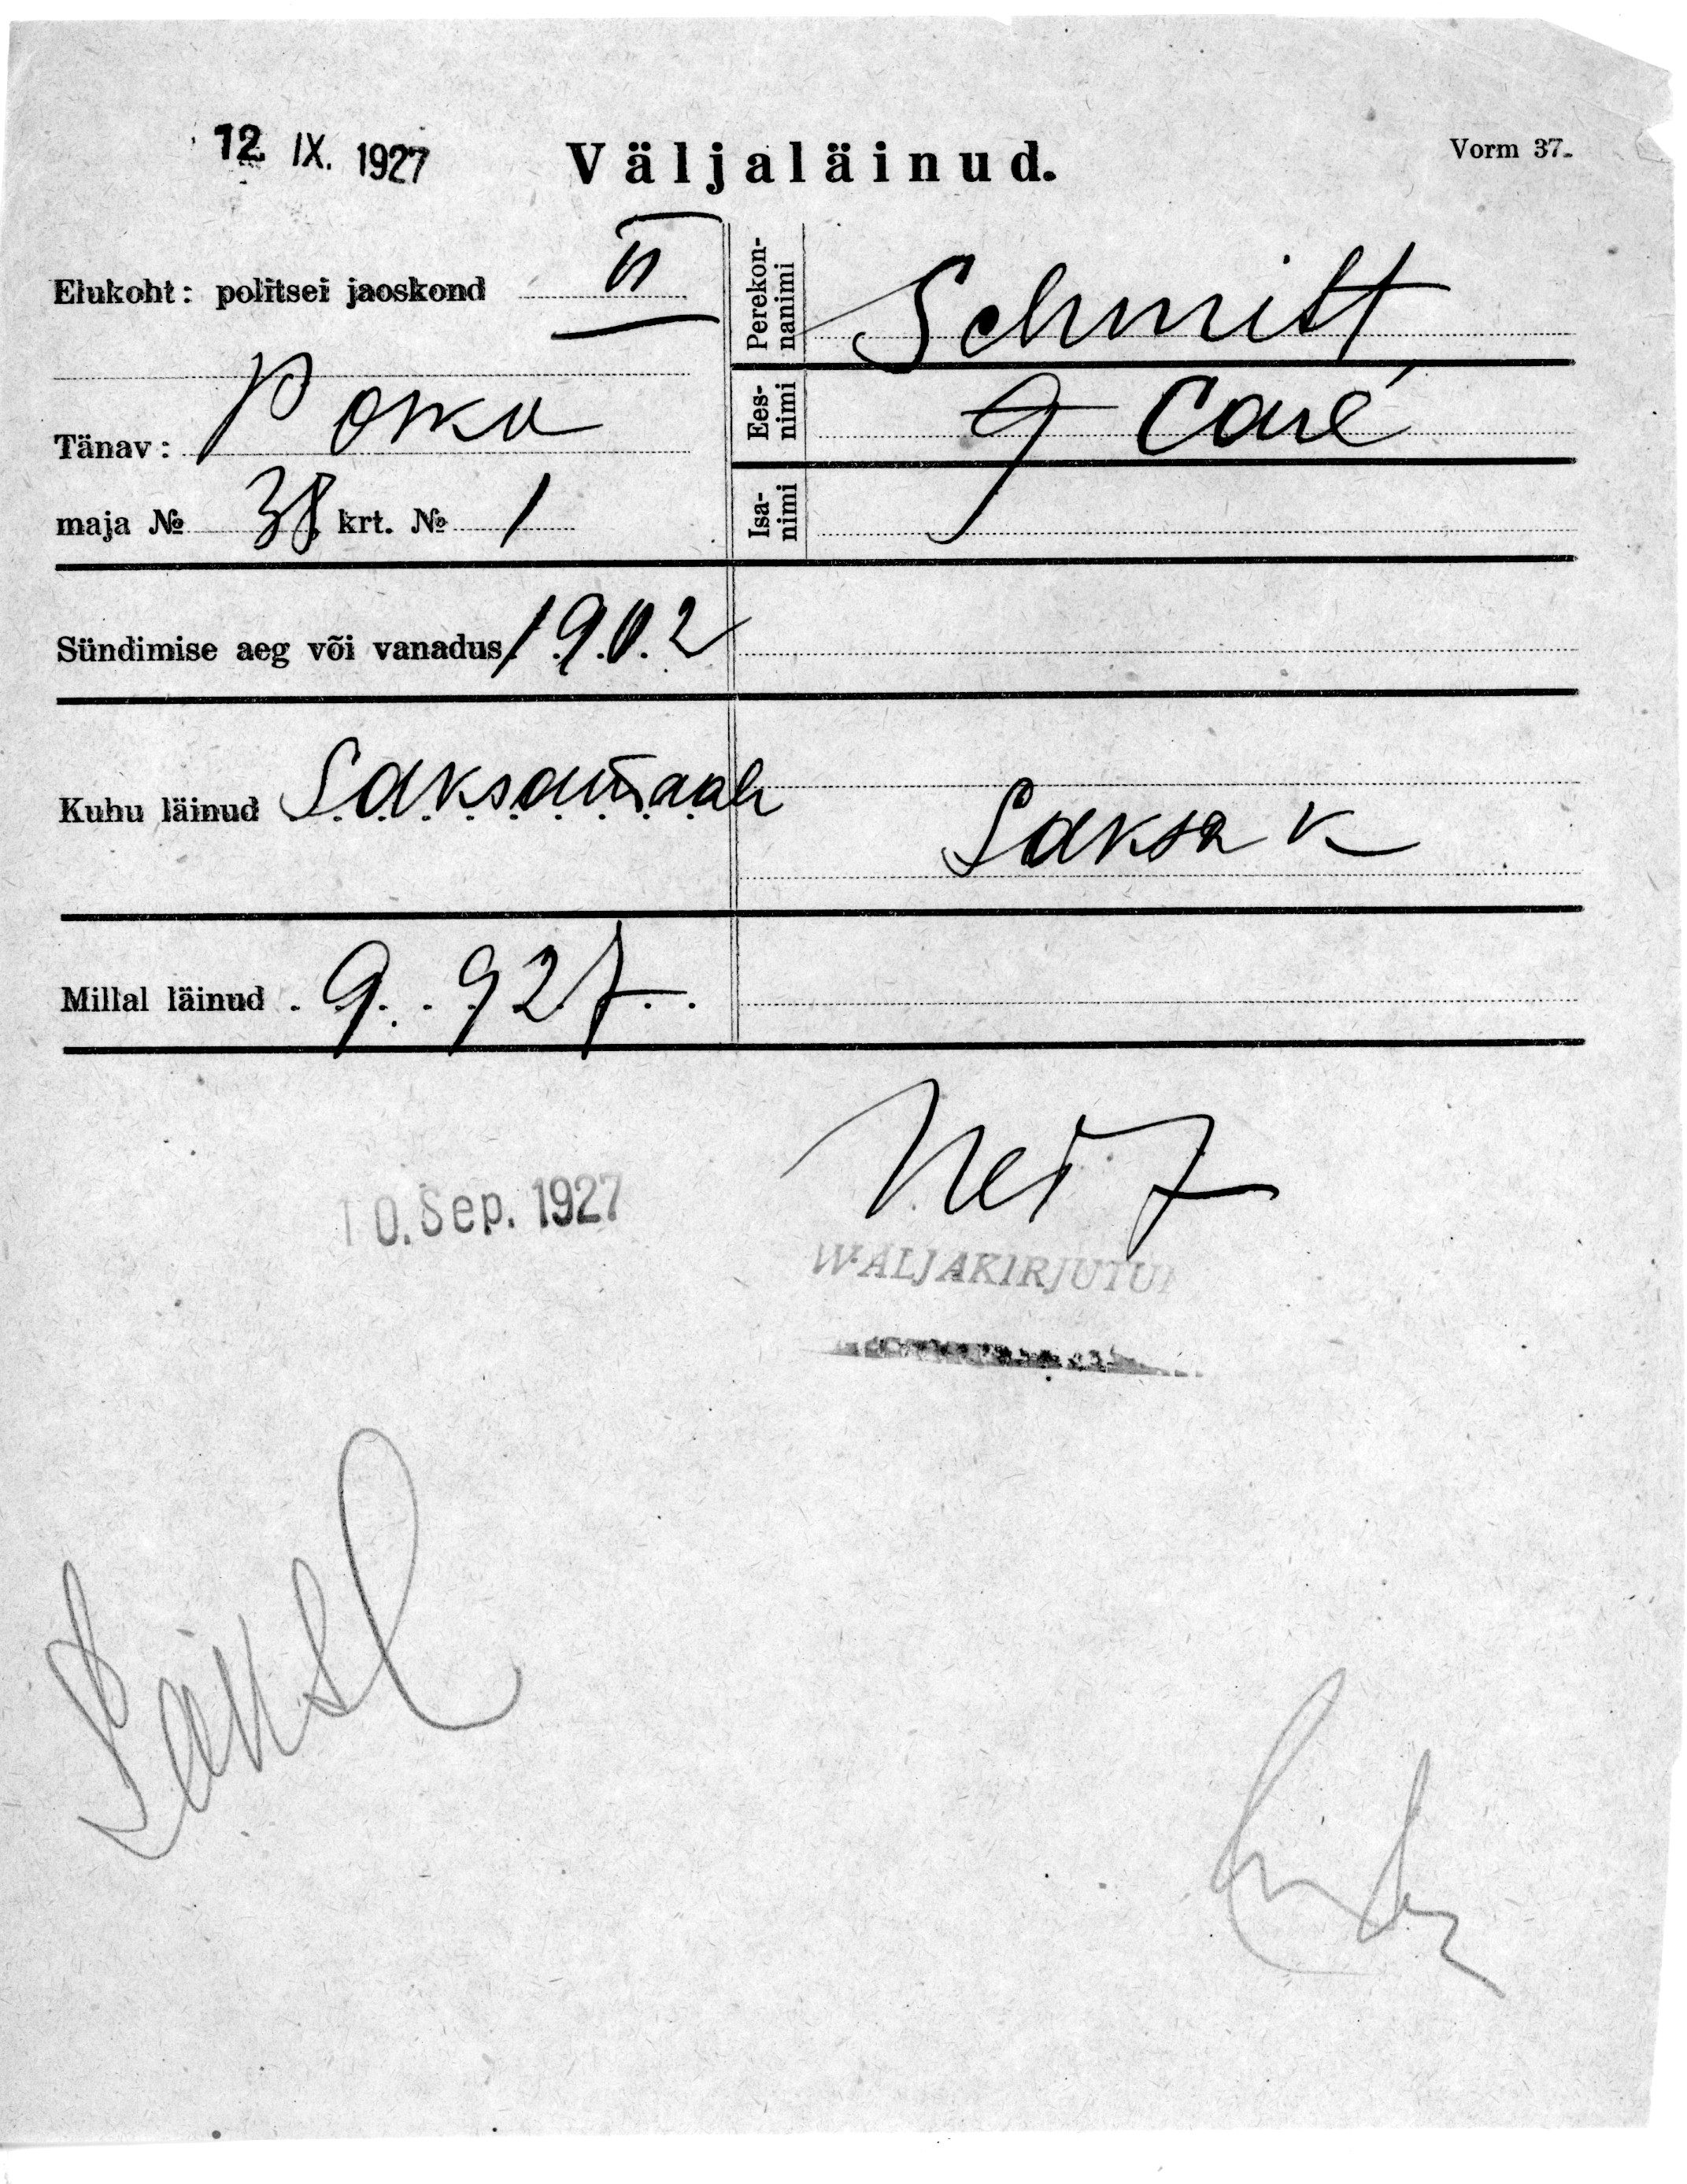 12. IX. 1927
Väljaläinud.
Vorm 37.
Elukoht: politsei jaoskond II
Tänav: Poska
maja № 38 krt. № 1
Perekonnanimi Schmitt
Eesnimi J Caré
Isanimi
Sündimise aeg või vanadus 1902
Kuhu läinud Saksamaale
Saksa k
Millal läinud 9. 927.
10. Sep. 1927
WÄLJAKIRJUTU